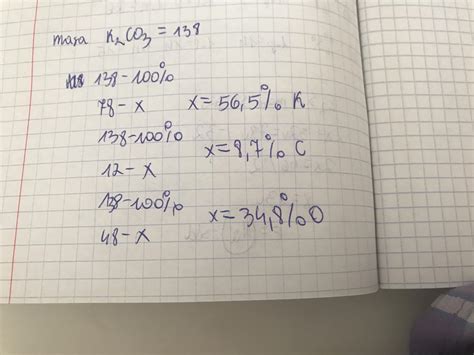 masa K₂CO₃ = 138
138 - 100%
78 - x x = 56,5% K
138 - 100%
12 - x x = 8,7% C
138 - 100%
48 - x x = 34,8% O